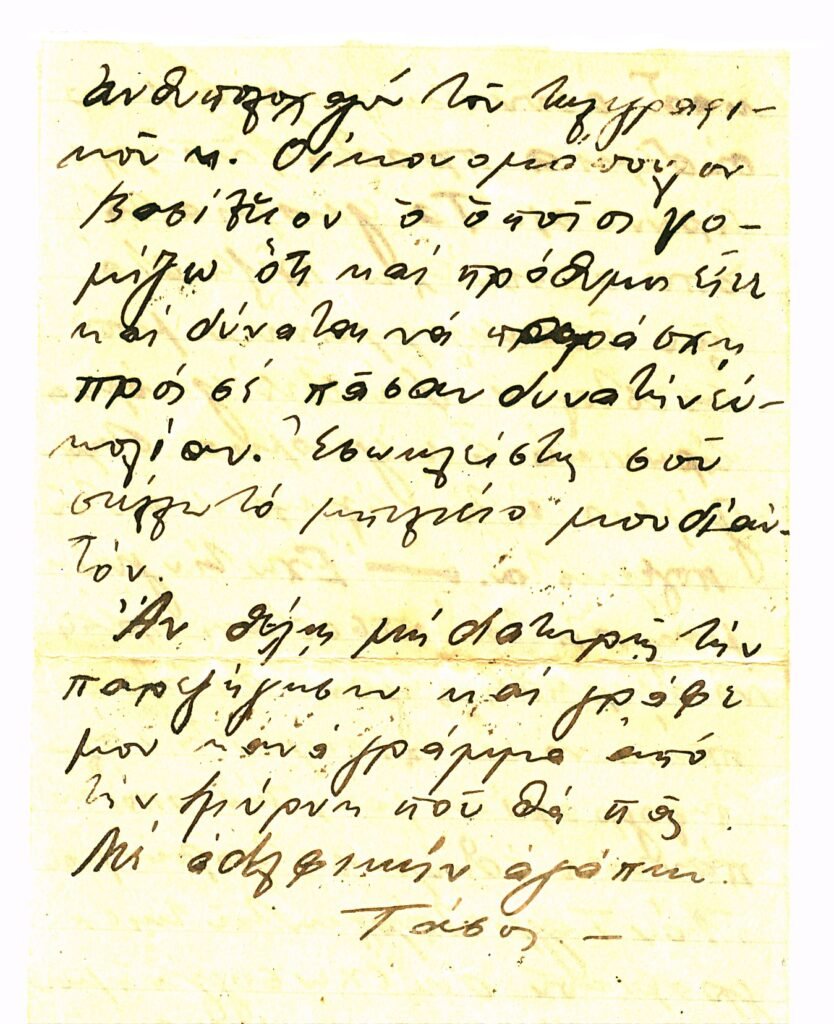 Ἀνθυπολοχαγόν τοῦ τηλεγραφι-
κοῦ κ. Οἰκονομόπουλον
Βασίλειον ὁ ὁποῖος νο-
μίζω ὅτι καί πρόθυμος εἶνε
καί δύναται νά παράσχη
πρός σέ πᾶσαν δυνατήν εὐ-
κολίαν. Ἐσωκλείστως σοῦ
στέλλω τό μπιλιέτο μου δι' αὐ-
τόν.
Ἄν θέλης μή διατηρῆς τήν
παρεξήγησιν καί γράφε
μου κανά γράμμα ἀπό
τήν Σμύρνη ποῦ θά πᾶς
Μέ ἀδελφικήν ἀγάπην.
Τάσος –